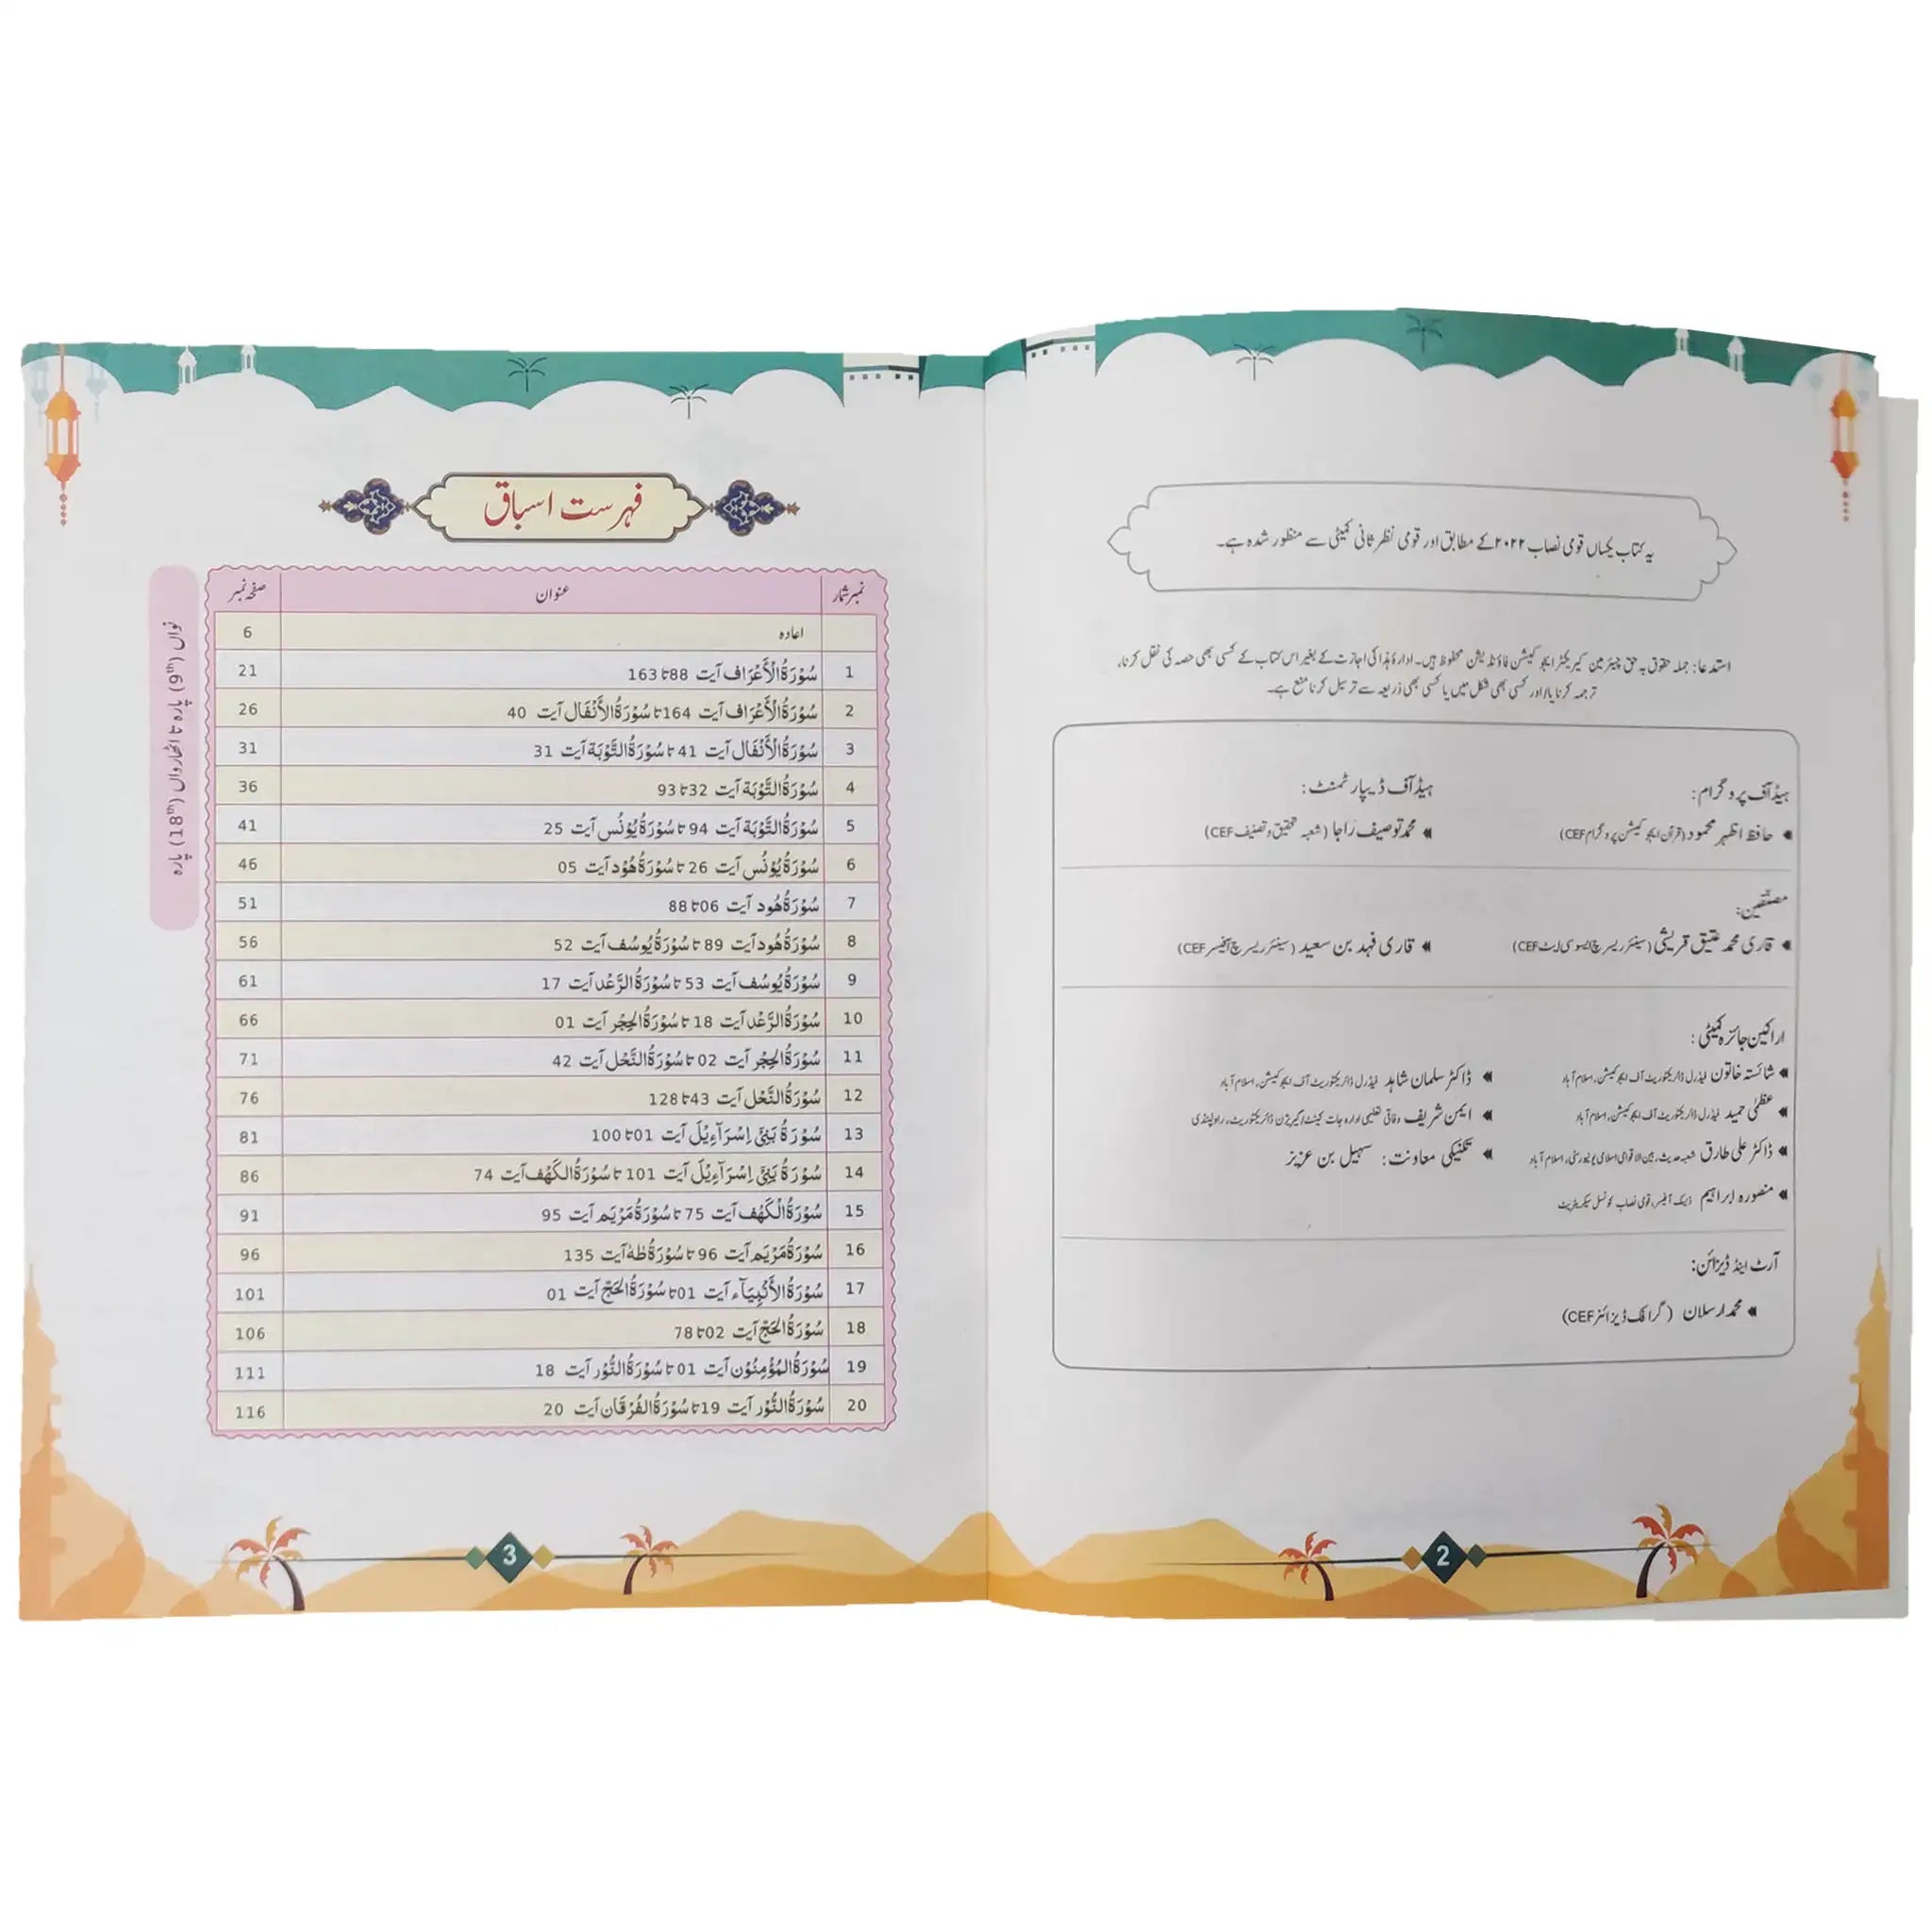 یہ کتاب یکساں قومی نصاب ۲۰۲۲ کے مطابق اور قومی نظر ثانی کمیٹی سے منظور شدہ ہے۔
استدعا: جملہ حقوق بہ حق چیئرمین کیریکٹر ایجوکیشن فاؤنڈیشن محفوظ ہیں۔ ادارۂ ہٰذا کی اجازت کے بغیر اس کتاب کے کسی بھی حصہ کی نقل کرنا،
ترجمہ کرنا یا/اور کسی بھی شکل میں یا کسی بھی ذریعہ سے ترسیل کرنا منع ہے۔
ہیڈ آف پروگرام: ہیڈ آف ڈیپارٹمنٹ:
حافظ اظہر محمود (قرآن ایجوکیشن پروگرام CEF) محمد توصیف راجا (شعبہ تحقیق و تصنیف CEF)
مصنّفین:
قاری محمد عتیق قریشی (سینئر ریسرچ ایسوسی ایٹ CEF) قاری فہد بن سعید (سینئر ریسرچ آفیسر CEF)
اراکین جائزہ کمیٹی:
شائستہ خاتون فیڈرل ڈائریکٹوریٹ آف ایجوکیشن، اسلام آباد ڈاکٹر سلمان شاہد فیڈرل ڈائریکٹوریٹ آف ایجوکیشن، اسلام آباد
عظمیٰ حمید فیڈرل ڈائریکٹوریٹ آف ایجوکیشن، اسلام آباد ایمن شریف وفاقی تعلیمی ادارہ جات کینٹ/گیریژن ڈائریکٹوریٹ، راولپنڈی
ڈاکٹر علی طارق شعبہ حدیث، بین الاقوامی اسلامی یونیورسٹی، اسلام آباد تکنیکی معاونت: سہیل بن عزیز
منصورہ ابراہیم ڈیسک آفیسر، قومی نصاب کونسل سیکریٹریٹ
آرٹ اینڈ ڈیزائن:
محمد ارسلان (گرافک ڈیزائنر CEF)
2
فہرست اسباق
نمبر شمار عنوان صفحہ نمبر
اعادہ 6
1 سُوْرَةُ الْأَعْرَاف آیت 88 تا 163 21
2 سُوْرَةُ الْأَعْرَاف آیت 164 تا سُوْرَةُ الْأَنْفَال آیت 40 26
3 سُوْرَةُ الْأَنْفَال آیت 41 تا سُوْرَةُ التَّوْبَة آیت 31 31
4 سُوْرَةُ التَّوْبَة آیت 32 تا 93 36
5 سُوْرَةُ التَّوْبَة آیت 94 تا سُوْرَةُ يُوْنُس آیت 25 41
6 سُوْرَةُ يُوْنُس آیت 26 تا سُوْرَةُ هُوْد آیت 05 46
7 سُوْرَةُ هُود آیت 06 تا 88 51
8 سُوْرَةُ هُود آیت 89 تا سُوْرَةُ يُوسُف آیت 52 56
9 سُوْرَةُ يُوسُف آیت 53 تا سُوْرَةُ الرَّعْد آیت 17 61
10 سُوْرَةُ الرَّعْد آیت 18 تا سُوْرَةُ الْحِجْر آیت 01 66
11 سُوْرَةُ الْحِجْر آیت 02 تا سُوْرَةُ النَّحْل آیت 42 71
12 سُوْرَةُ النَّحْل آیت 43 تا 128 76
13 سُوْرَةُ بَنِيْٓ اِسْرَآءِيْلَ آیت 01 تا 100 81
14 سُوْرَةُ بَنِيْٓ اِسْرَآءِيْلَ آیت 101 تا سُوْرَةُ الْكَهْف آیت 74 86
15 سُوْرَةُ الْكَهْف آیت 75 تا سُوْرَةُ مَرْيَم آیت 95 91
16 سُوْرَةُ مَرْيَم آیت 96 تا سُوْرَةُ طٰهٰ آیت 135 96
17 سُوْرَةُ الْأَنْبِيَآء آیت 01 تا سُوْرَةُ الْحَجّ آیت 01 101
18 سُوْرَةُ الْحَجّ آیت 02 تا 78 106
19 سُوْرَةُ الْمُؤْمِنُوْن آیت 01 تا سُوْرَةُ النُّوْر آیت 18 111
20 سُوْرَةُ النُّوْر آیت 19 تا سُوْرَةُ الْفُرْقَان آیت 20 116
3